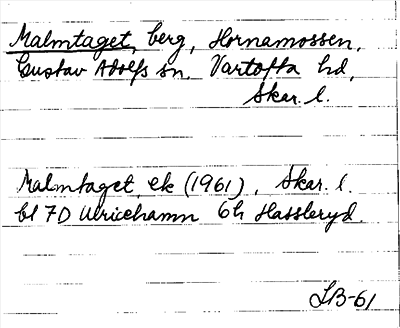 Malmtaget, berg, Hornamossen,
Gustav Adolfs sn. Vartofta hd,
Skar. l.
Malmtaget, ek (1961), Skar. l.
bl 7D Ulricehamn 6h Hassleryd.
LB-61